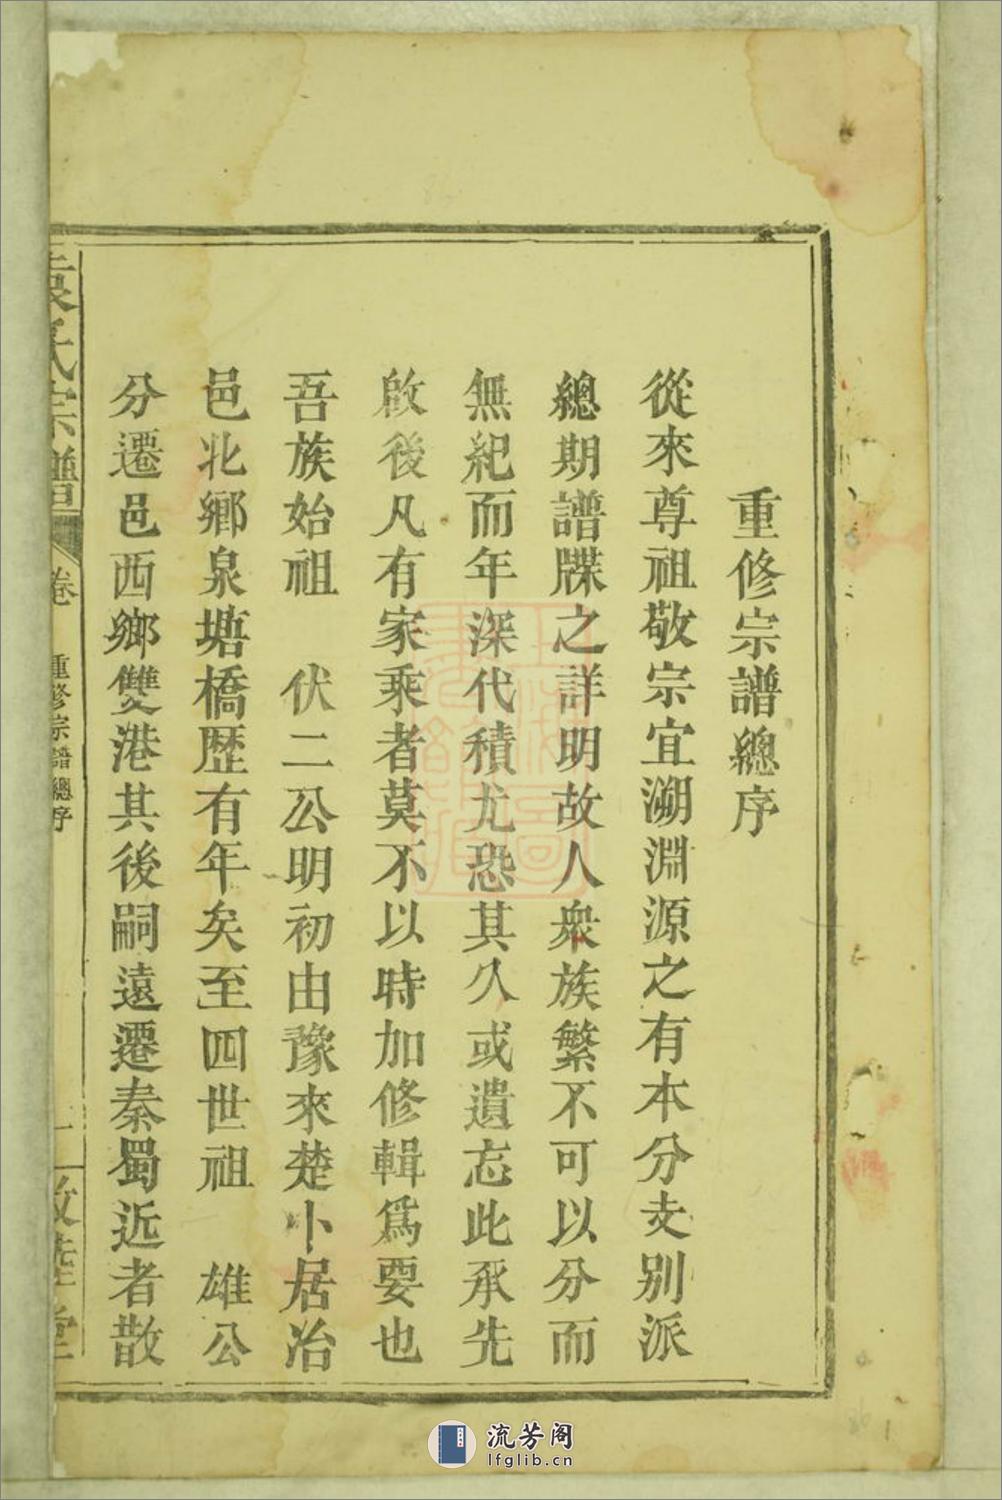 重修宗譜總序
從來尊祖敬宗宜溯淵源之有本分支別派
總期譜牒之詳明故人衆族繁不可以分而
無紀而年深代積尤恐其久或遺忘此承先
啟後凡有家乘者莫不以時加修輯爲要也
吾族始祖　伏二公明初由豫來楚卜居冶
邑北鄉泉塘橋歷有年矣至四世祖　雄公
分遷邑西鄉雙港其後嗣遠遷秦蜀近者散
袁氏宗譜
卷
重修宗譜總序
堂
流芳阁
lfglib.cn